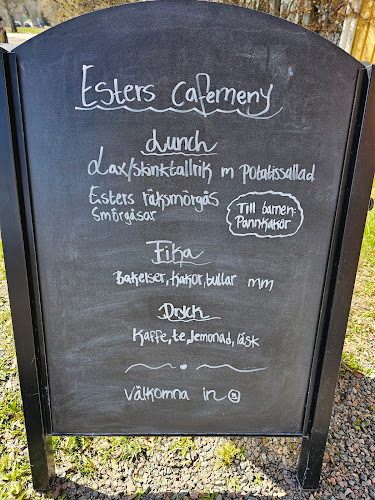 Esters cafemeny
Lunch
Lax/skinktallrik m potatissallad
Esters räksmörgås
Smörgåsar
Till barnen-
Pannkakor
Fika
Bakelser, kakor, bullar mm
Dryck
Kaffe, te, lemonad, läsk
välkomna in